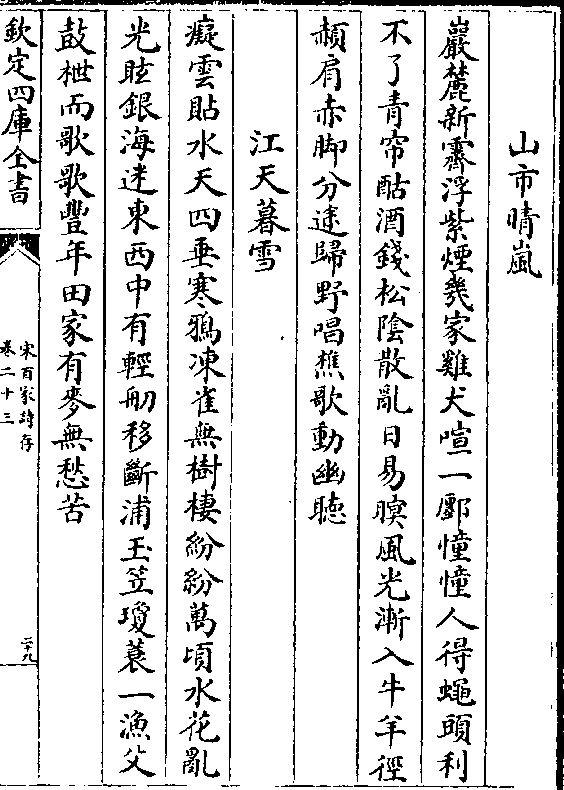 山市晴嵐
巖麓新霽浮紫煙幾家雞犬喧一鄽憧憧人得蠅頭利
不了青帘酤酒錢松陰散亂日易暝風光漸入牛羊徑
頳肩赤脚分途歸野唱樵歌動幽聽
江天暮雪
癡雲貼水天四垂寒鴉凍雀無樹棲紛紛萬頃水花亂
光眩銀海迷東西中有輕舠移斷浦玉笠瓊蓑一漁父
鼓枻而歌歌豐年田家有麥無愁苦
欽定四庫全書
宋百家詩存
卷二十三
二十九